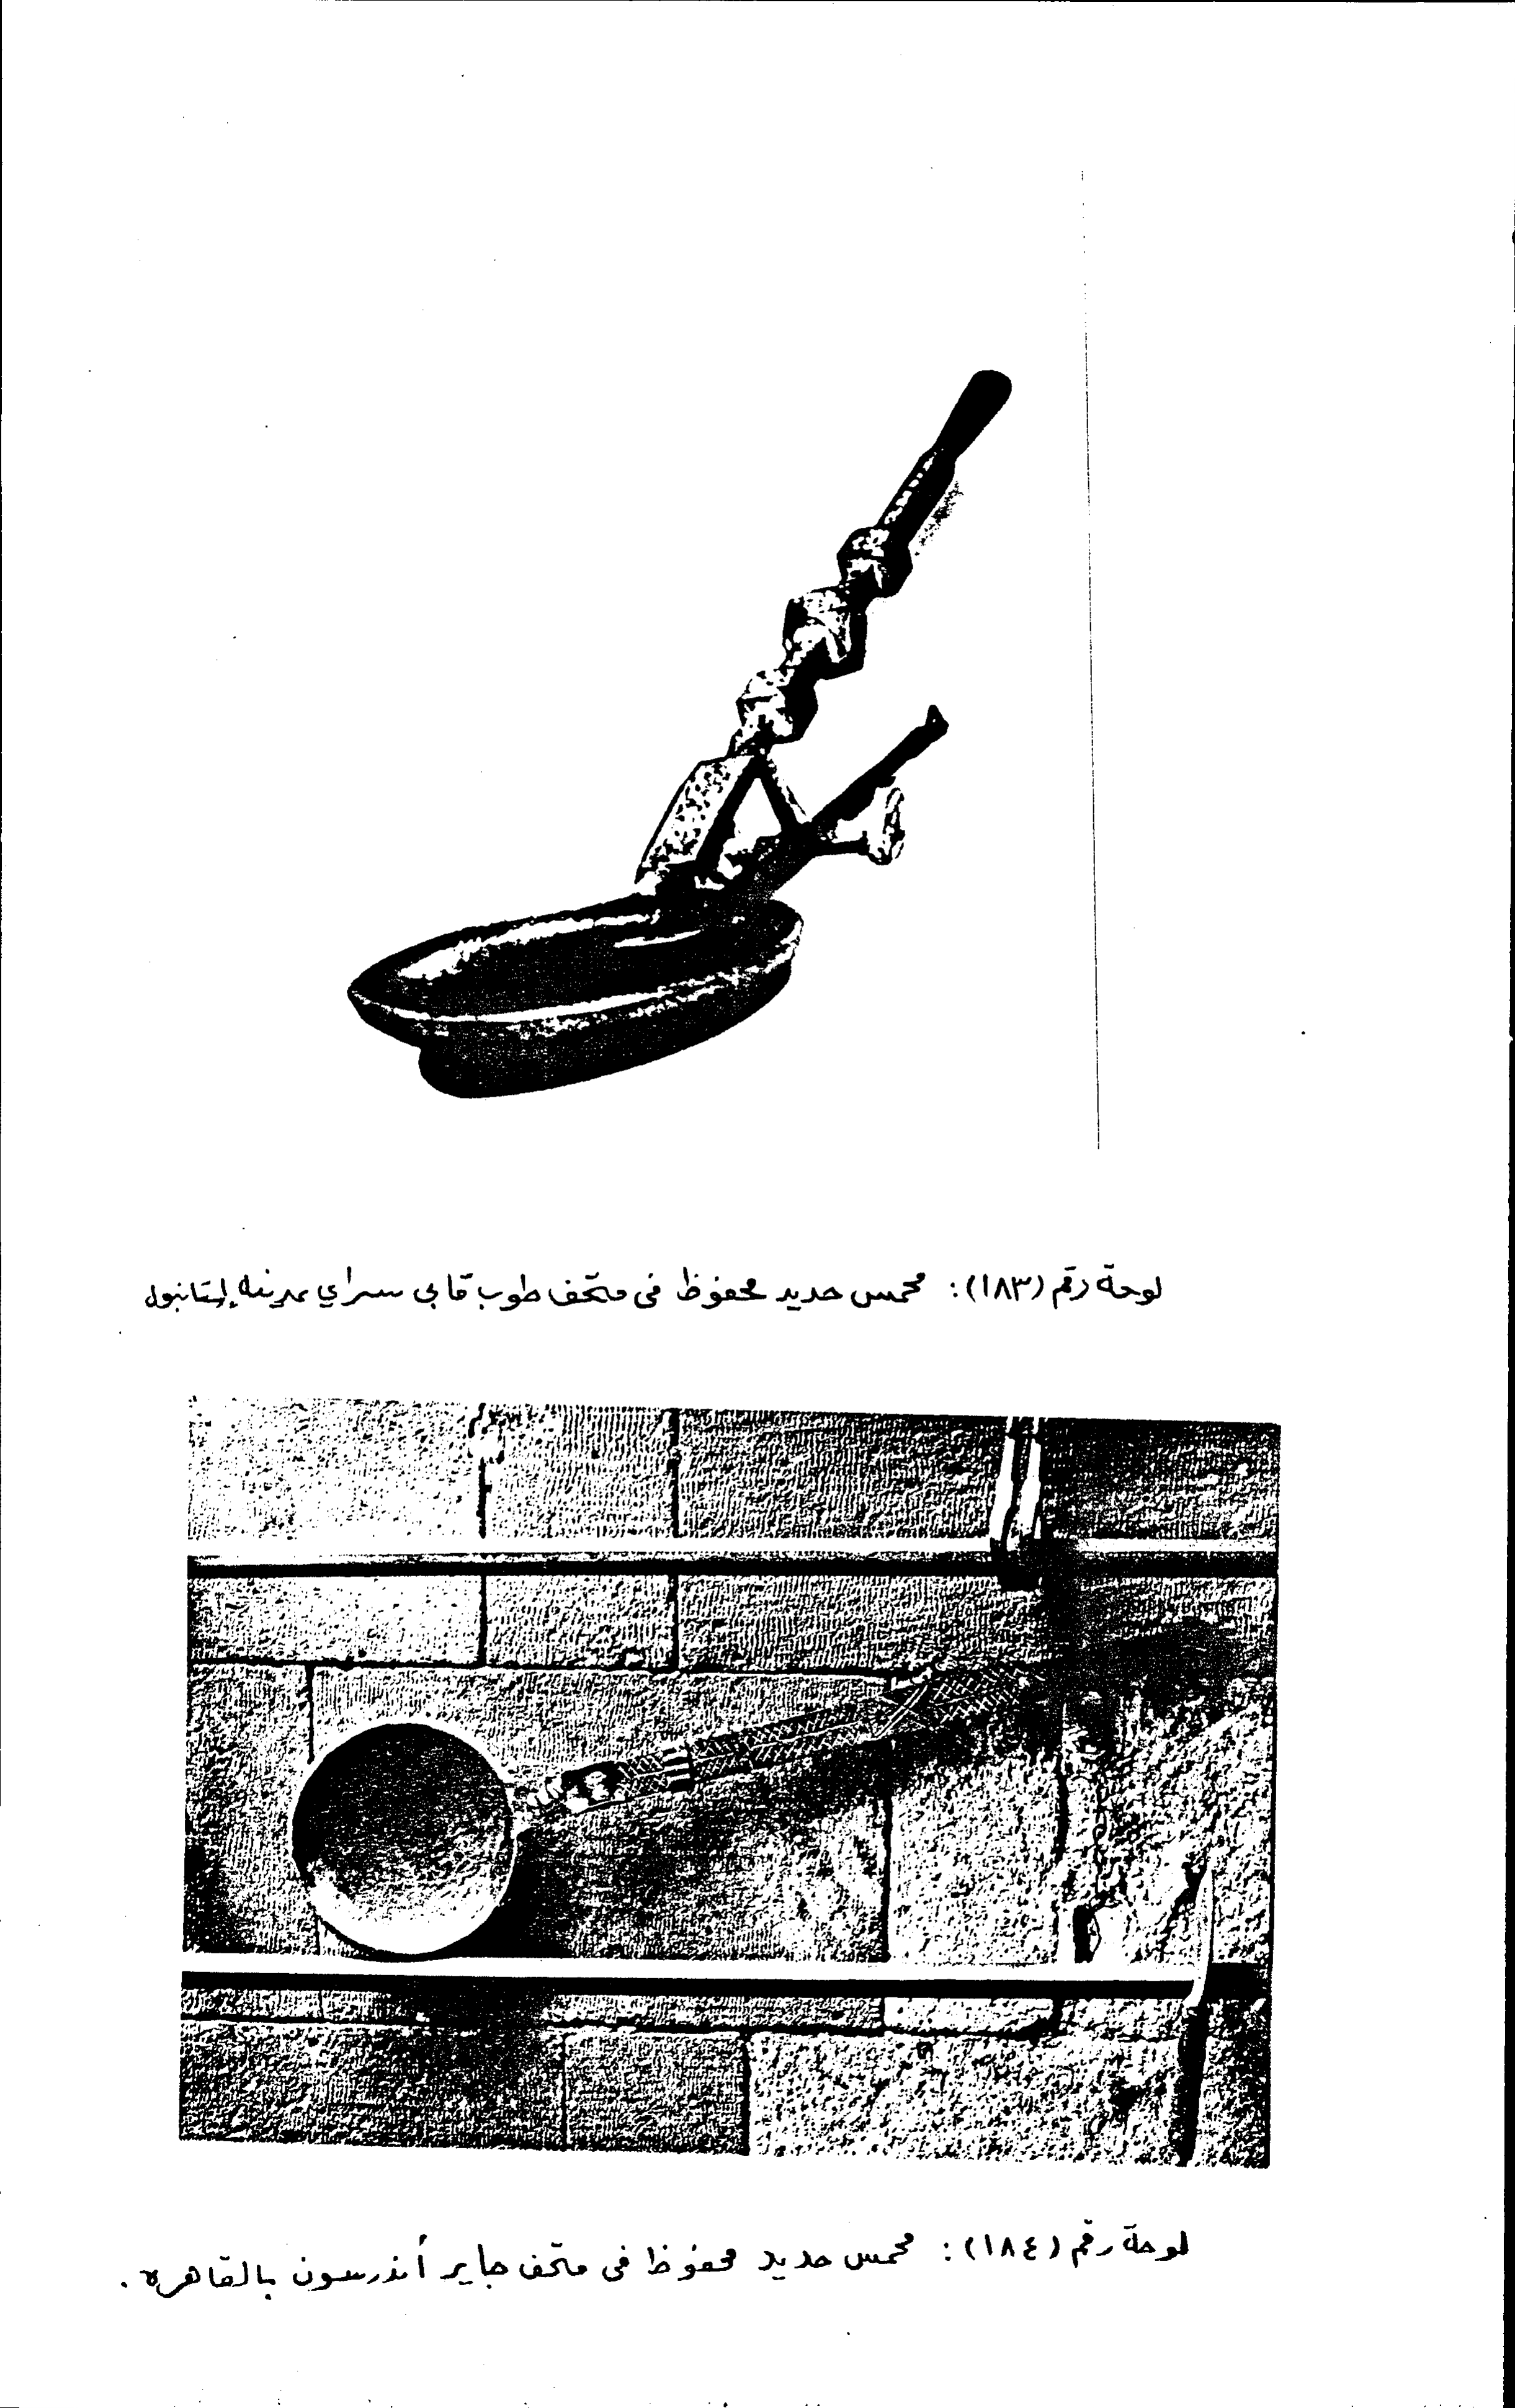 لوحة رقم (١٨٣): محمس حديد محفوظ فى متحف طوب قابى سراي بمدينة إستانبول
لوحة رقم (١٨٤): محمس حديد محفوظ فى متحف جاير أندرسون بالقاهرة.